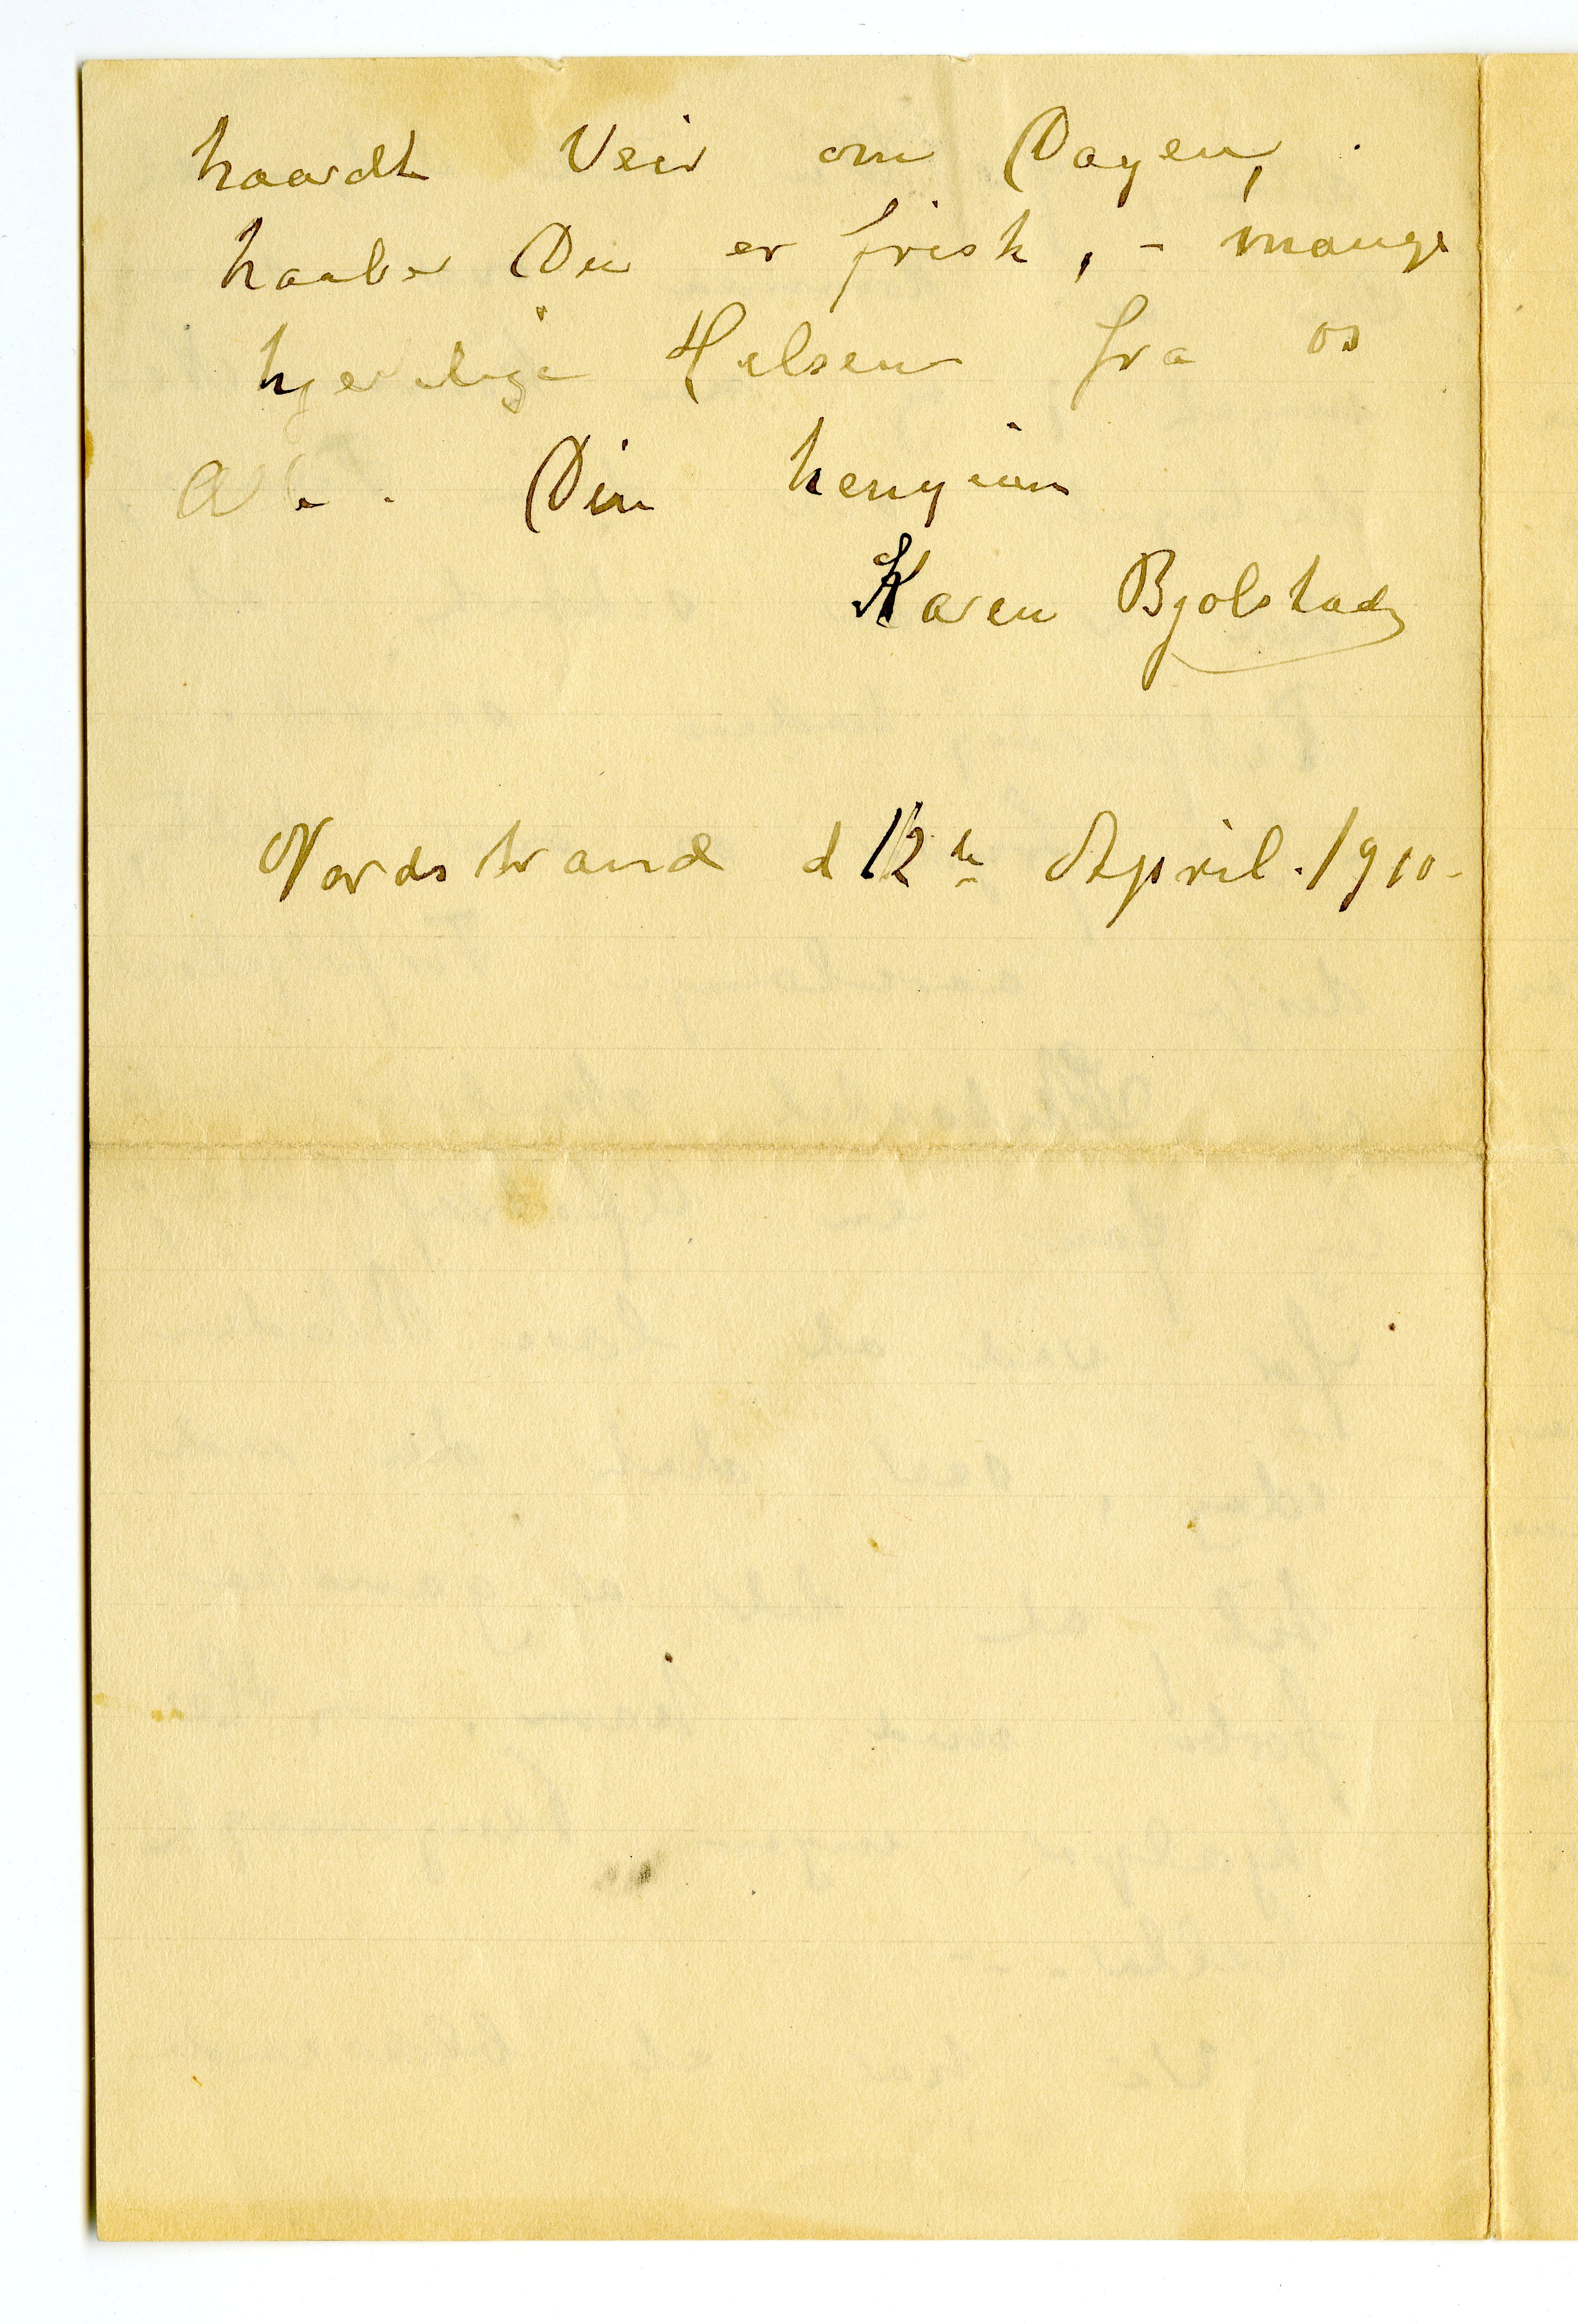 haardt Veir om Dagen,
haaber Du er frisk, - mange
hjertelige Helsener fra os
Alle. Din hengivne
Karen Bjølstad
Nordstrand d 12te April. 1910-